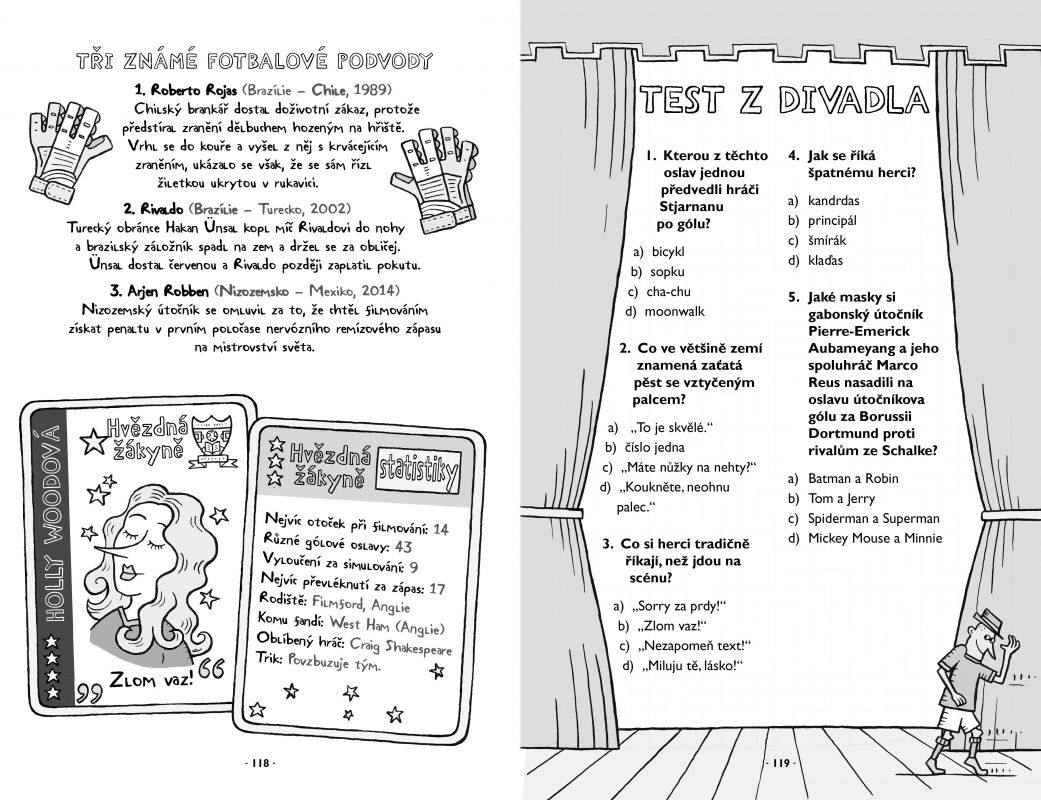 TŘI ZNÁMÉ FOTBALOVÉ PODVODY
1. Roberto Rojas (Brazílie – Chile, 1989)
Chilský brankář dostal doživotní zákaz, protože
předstíral zranění dělbuchem hozeným na hřiště.
Vrhl se do kouře a vyšel z něj s krvácejícím
zraněním, ukázalo se však, že se sám řízl
žiletkou ukrytou v rukavici.
2. Rivaldo (Brazílie – Turecko, 2002)
Turecký obránce Hakan Ünsal kopl míč Rivaldovi do nohy
a brazilský záložník spadl na zem a držel se za obličej.
Ünsal dostal červenou a Rivaldo později zaplatil pokutu.
3. Arjen Robben (Nizozemsko – Mexiko, 2014)
Nizozemský útočník se omluvil za to, že chtěl filmováním
získat penaltu v prvním poločase nervózního remízového zápasu
na mistrovství světa.
HOLLY WOODOVÁ
Hvězdná
žákyně
„Zlom vaz!“
Hvězdná
žákyně
statistiky
Nejvíc otoček při filmování: 14
Různé gólové oslavy: 43
Vyloučení za simulování: 9
Nejvíc převléknutí za zápas: 17
Rodiště: Filmford, Anglie
Komu fandí: West Ham (Anglie)
Oblíbený hráč: Craig Shakespeare
Trik: Povzbuzuje tým.
· 118 ·
TEST Z DIVADLA
1. Kterou z těchto
oslav jednou
předvedli hráči
Stjarnanu
po gólu?
a) bicykl
b) sopku
c) cha-chu
d) moonwalk
2. Co ve většině zemí
znamená zaťatá
pěst se vztyčeným
palcem?
a) „To je skvělé.“
b) číslo jedna
c) „Máte nůžky na nehty?“
d) „Koukněte, neohnu
palec.“
3. Co si herci tradičně
říkají, než jdou na
scénu?
a) „Sorry za prdy!“
b) „Zlom vaz!“
c) „Nezapomeň text!“
d) „Miluju tě, lásko!“
4. Jak se říká
špatnému herci?
a) kandrdas
b) principál
c) šmírák
d) klaďas
5. Jaké masky si
gabonský útočník
Pierre-Emerick
Aubameyang a jeho
spoluhráč Marco
Reus nasadili na
oslavu útočníkova
gólu za Borussii
Dortmund proti
rivalům ze Schalke?
a) Batman a Robin
b) Tom a Jerry
c) Spiderman a Superman
d) Mickey Mouse a Minnie
· 119 ·